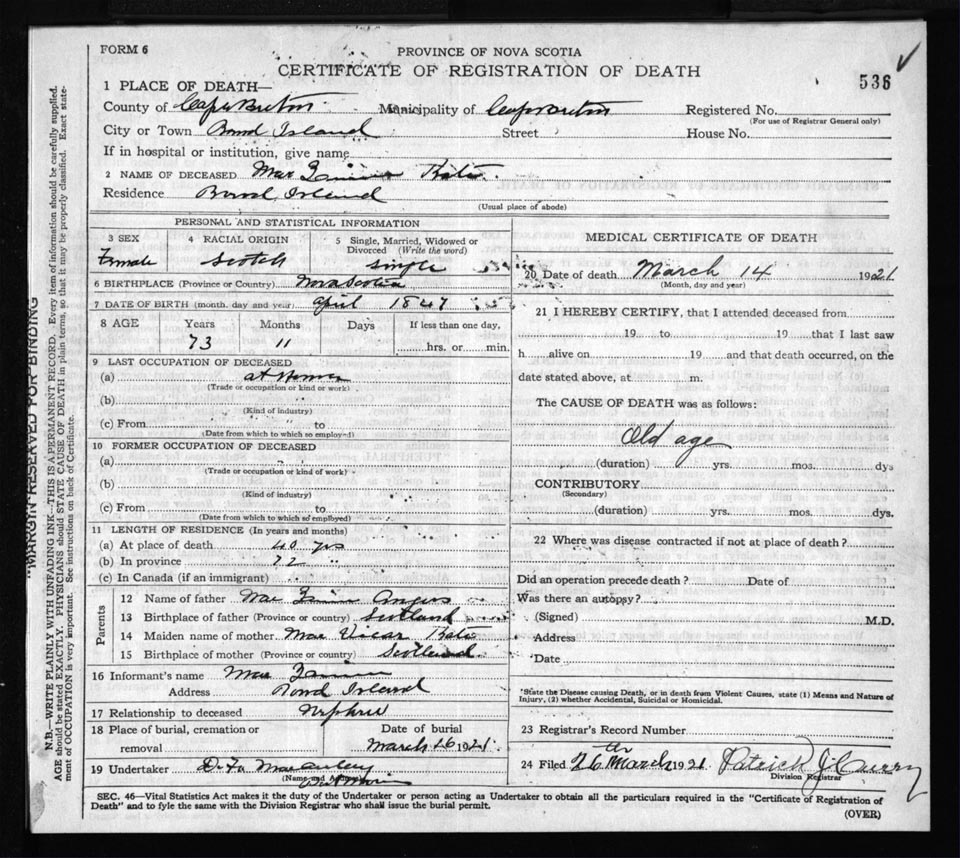 FORM 6
PROVINCE OF NOVA SCOTIA
CERTIFICATE OF REGISTRATION OF DEATH
536
1 PLACE OF DEATH—
County of Cape Breton Municipality of Cape Breton Registered No.
(For use of Registrar General only)
City or Town Island Street House No.
If in hospital or institution, give name
2 NAME OF DECEASED Mac Kate
Residence Island
(Usual place of abode)
PERSONAL AND STATISTICAL INFORMATION
3 SEX 4 RACIAL ORIGIN 5 Single, Married, Widowed or Divorced (Write the word)
Female Scotch Single
6 BIRTHPLACE (Province or Country) Nova Scotia
7 DATE OF BIRTH (month, day and year) April 1847
8 AGE Years Months Days If less than one day,
73 11 hrs. or min.
9 LAST OCCUPATION OF DECEASED
(a) at Home
(Trade or occupation or kind or work)
(b)
(Kind of industry)
(c) From to
(Date from which to which employed)
10 FORMER OCCUPATION OF DECEASED
(a)
(Trade or occupation or kind of work)
(b)
(Kind of industry)
(c) From to
(Date from which to which so employed)
11 LENGTH OF RESIDENCE (In years and months)
(a) At place of death 40 yrs
(b) In province "
(c) In Canada (if an immigrant)
Parents
12 Name of father Mac Angus
13 Birthplace of father (Province or country) Scotland
14 Maiden name of mother Mac Vicar Kate
15 Birthplace of mother (Province or country) Scotland
16 Informant's name Mac
Address Island
17 Relationship to deceased Nephew
18 Place of burial, cremation or removal Date of burial
March 16 1921
19 Undertaker
(Name and Address)
MEDICAL CERTIFICATE OF DEATH
20 Date of death March 14 1921
(Month, day and year)
21 I HEREBY CERTIFY, that I attended deceased from
19 to 19 that I last saw
h alive on 19 and that death occurred, on the
date stated above, at m.
The CAUSE OF DEATH was as follows:
Old age
(duration) yrs. mos. dys
CONTRIBUTORY
(Secondary)
(duration) yrs. mos. dys.
22 Where was disease contracted if not at place of death?
Did an operation precede death? Date of
Was there an autopsy?
(Signed) M.D.
Address
Date
*State the Disease causing Death, or in death from Violent Causes, state (1) Means and Nature of
Injury, (2) whether Accidental, Suicidal or Homicidal.
23 Registrar's Record Number
24 Filed 26th March 1921 Patrick J. Curry
Division Registrar
SEC. 46—Vital Statistics Act makes it the duty of the Undertaker or person acting as Undertaker to obtain all the particulars required in the "Certificate of Registration of
Death" and to fyle the same with the Division Registrar who shall issue the burial permit.
(OVER)
MARGIN RESERVED FOR BINDING
N.B.—WRITE PLAINLY WITH UNFADING INK—THIS IS A PERMANENT RECORD. Every item of information should be carefully supplied.
AGE should be stated EXACTLY. PHYSICIANS should STATE CAUSE OF DEATH in plain terms, so that it may be properly classified. Exact state-
ment of OCCUPATION is very important. See instructions on back of Certificate.